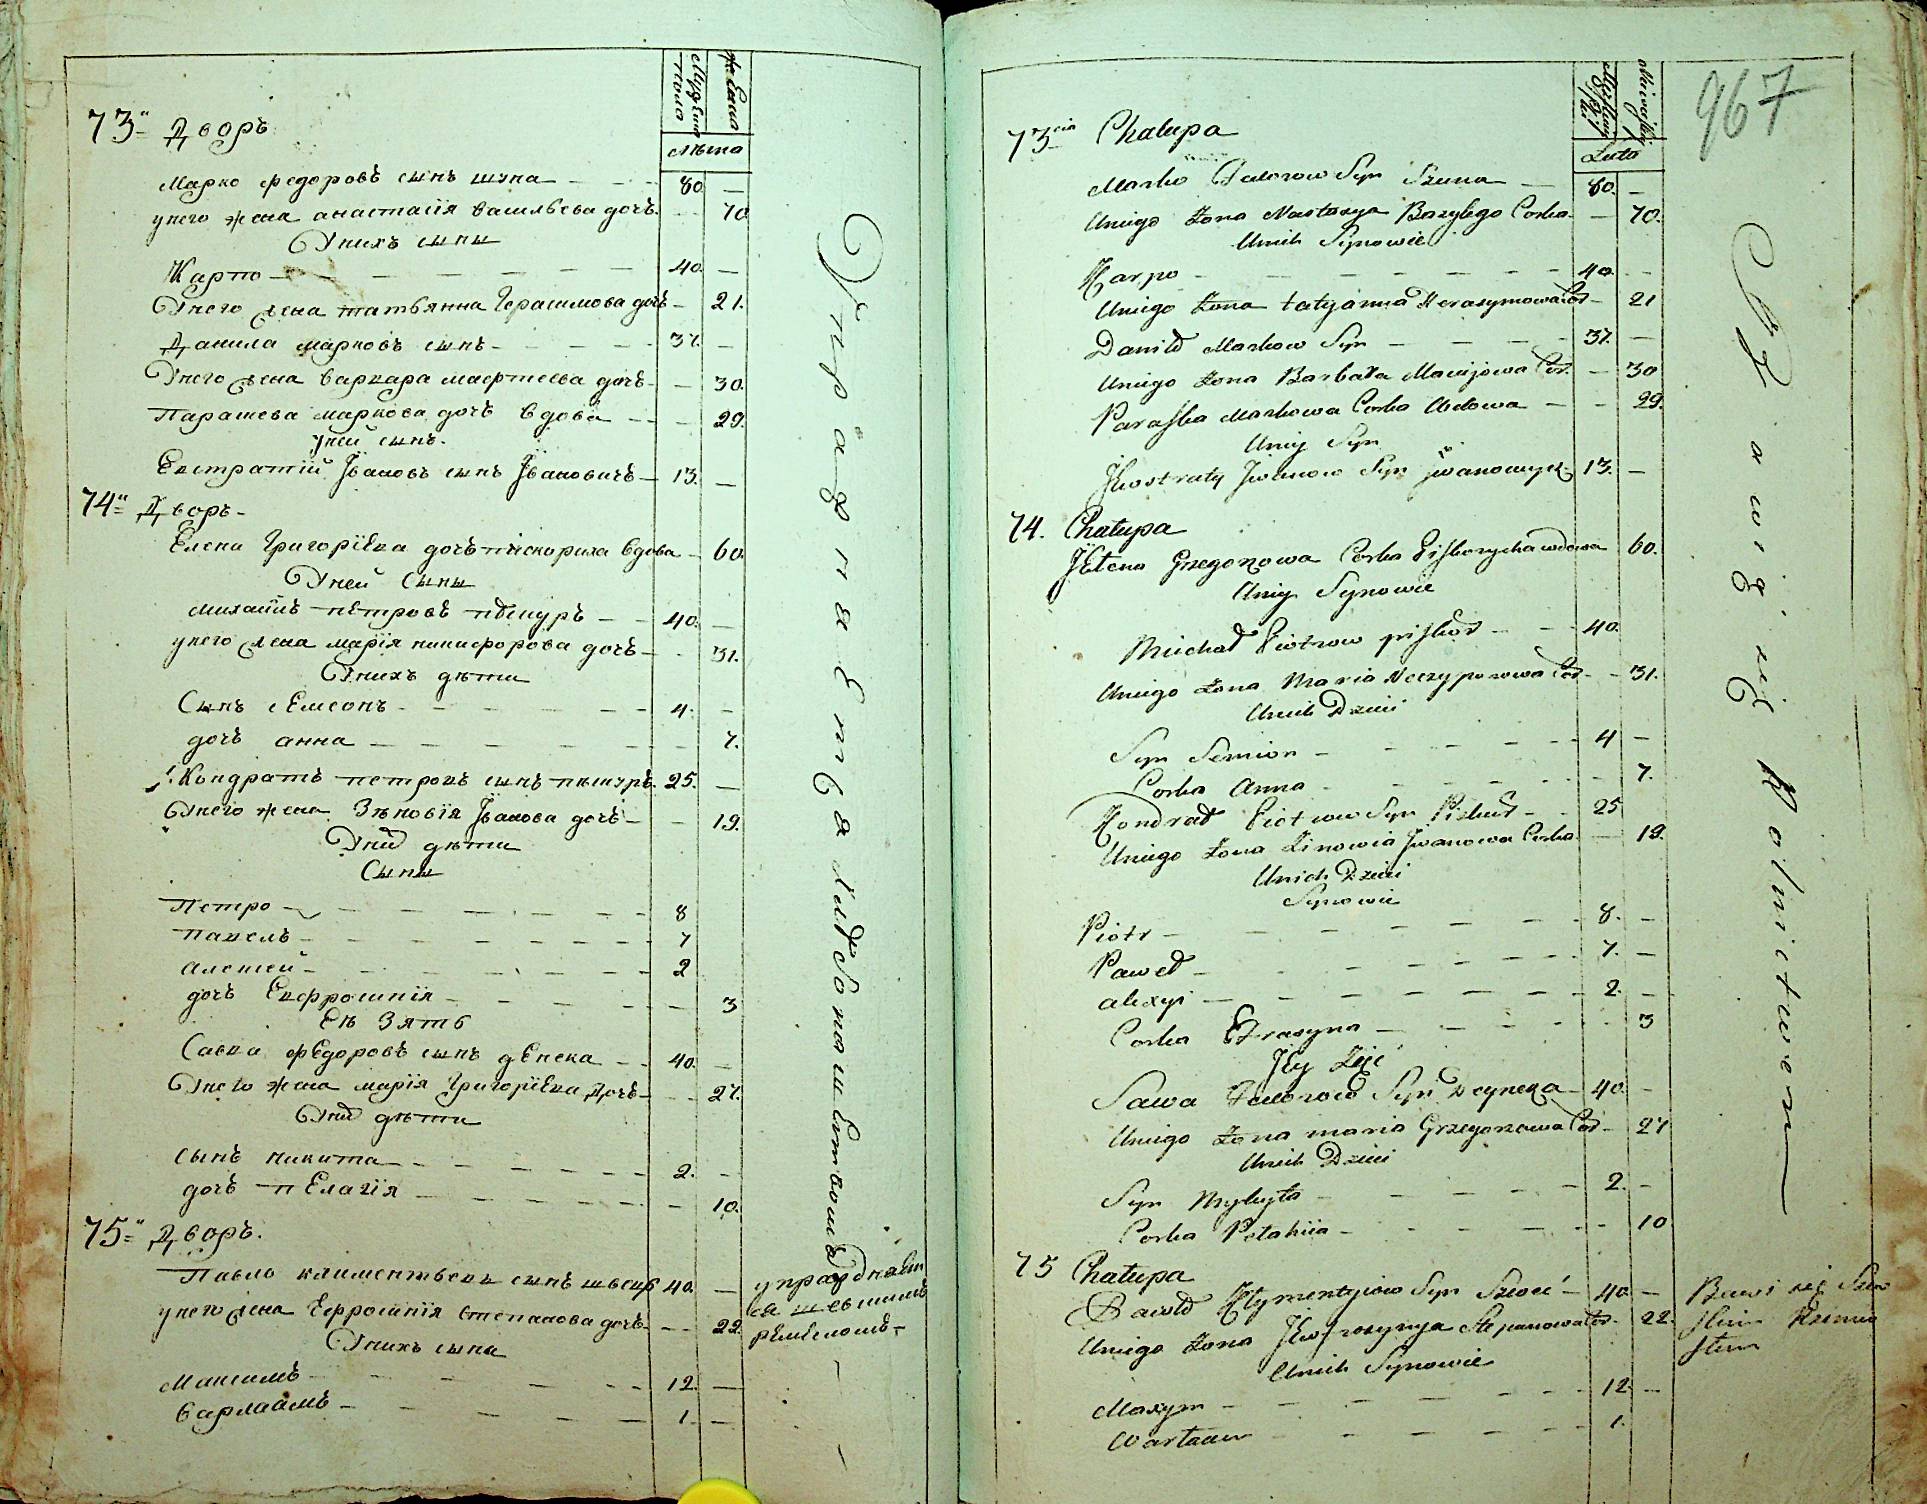 Мужеска пола
женска
лѣта
73й Дворъ
Марко федоровъ сынъ шупа 80 —
унего жена анастасїя васильева дочь — 70
Унихъ сыны
Карпо 40 —
Унего жена татьянна Герасимова дочь — 21.
Данила марковъ сынъ 37. —
Унего жена варвара матфеева дочь — 30.
Парасева маркова дочь вдова — 29.
уней сынъ.
Евстратїй Їванов сынъ Ївановичъ 13. —
74й Дворъ
Елена Григорїева дочь пискориха вдова — 60.
Уней Сыны
михаилъ петровъ 40. —
унего жена марїя никифорова дочь — 31.
Унихъ дѣти
Сынъ семионъ 4. —
дочь анна — 7.
Кондратъ петровъ сынъ 25. —
Унего жена Зѣновїя Їванова дочь — 19.
Унихъ дѣти
Сыны
Петро 8
павелъ 7
алексей 2
дочь Евфросинїя — 3
Еѣ Зять
Савка федоровъ сынъ денека 40. —
Унего жена марїя Григорїева дочь — 27.
Унихъ дѣти
сынъ никита 2. —
дочь пелагїя — 10.
75й Дворъ.
Павло климентьевъ сынъ швецъ 40. —
унего жена Ефросинїя степанова дочь — 22.
Унихъ сына
Максимъ 12. —
варлаамъ 1. —
Упражняется
упражняет
ся шевскимъ
ремесломъ
967
Lata
73cia Chałupa
Marko Fedorow Syn Szuna 80. —
Uniego Żona Nastazya Bazylego Corka — 70.
Unich Synowie
Karpo 40. —
Uniego Żona tatyanna Herasymowa Cor — 21
Daniło Markow Syn 37. —
Uniego Żona Barbara Maciejowa Cor. — 30
Paraska Markowa Corka Wdowa — 29.
Uniey Syn
Jewstraty Jwanow Syn Jwanowicz 13. —
74. Chałupa
Jełena Grzegorzowa Corka Piskorzycha wdowa 60.
Uniey Synowie
Michał Piotrow piskor 40.
Uniego Żona Maria Neczyporowa Cor — 31.
Unich Dzieci
Syn Semion 4 —
Corka Anna 7.
Kondrad Piotrow Syn Piskur 25
Uniego Żona Zinowia Jwanowa Corka — 19.
Unich Dzieci
Synowie
Piotr 8. —
Paweł 7. —
alexyi 2. —
Corka Efrasyna 3
Jey Zięć
Sawa Fedorow Syn Deyneka 40 —
Uniego Żona maria Grzegorzowa Cor — 27
Unich Dzieci
Syn Mykyta 2. —
Corka Pełahiia 10
75 Chałupa
Pawło Klymentyiow Syn Szewc 40. —
Uniego Żona Jewfrosynya Stepanowa Cor. 22.
Unich Synowie
Maxym 12. —
Warłaam 1.
Bawi się Szew
skim Rzemio
słem
Bawią się Rolnictwem